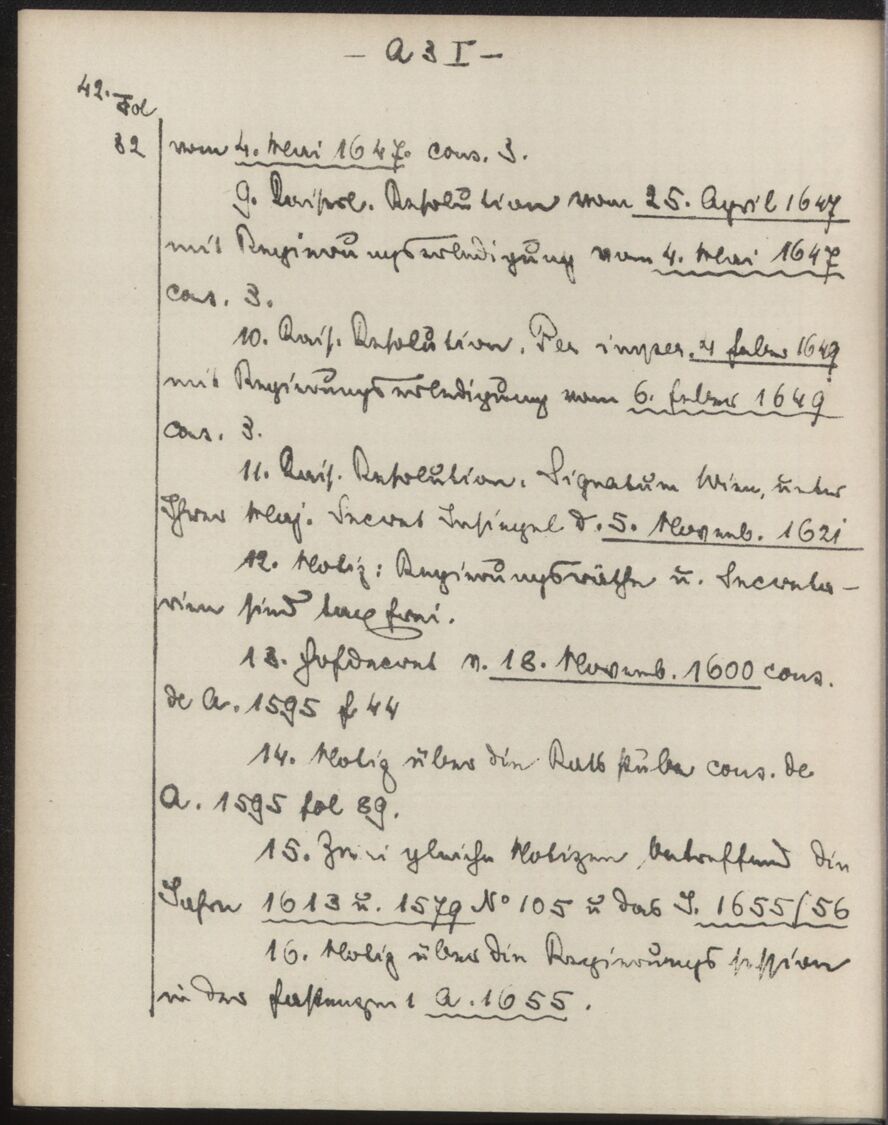 - A 3 I -
42. Fol
32 vom 4. Mai 1647. cons. 3.
9. Kaiserl. Resolution vom 25. April 1647
mit Regierungserledigung vom 4. Mai 1647
cons. 3.
10. Kais. Resolution. Per imper. 4 feber 1649
mit Regierungserledigung vom 6. feber 1649
cons. 3.
11. Kais. Resolution. Signatum Wien, unter
Ihrer Maj. Secret Insiegel d. 5. Novemb. 1621
12. Notiz: Regierungsräthe u. Secreta-
rien sind taxfrei.
13. Hofdecret v. 18. Novemb. 1600 cons.
de A. 1595 f 44
14. Notiz über die Rathstube cons. de
A. 1595 fol 89.
15. Zwei gleiche Notizen betreffend die
Jahre 1613 u. 1579 No 105 u das J. 1655/56
16. Notiz über die Regierungssession
in der Fastenzeit A. 1655.